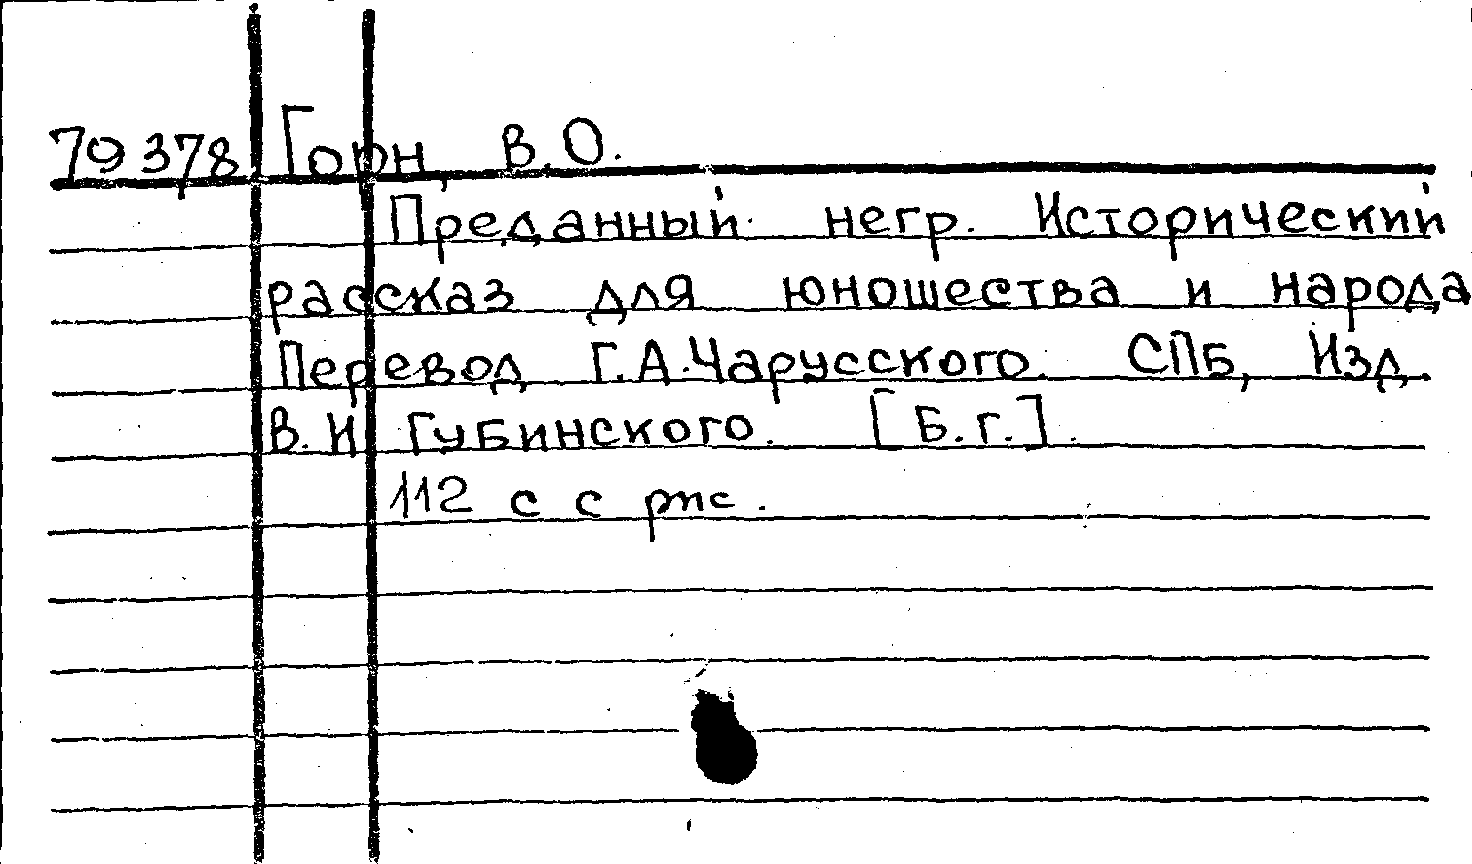 79378 Горн, В.О.
Преданный негр. Исторический
рассказ для юношества и народа
Перевод Г.А.Чарусского. СПБ, Изд.
В.И Губинского. [Б.г.].
112 с с рис.